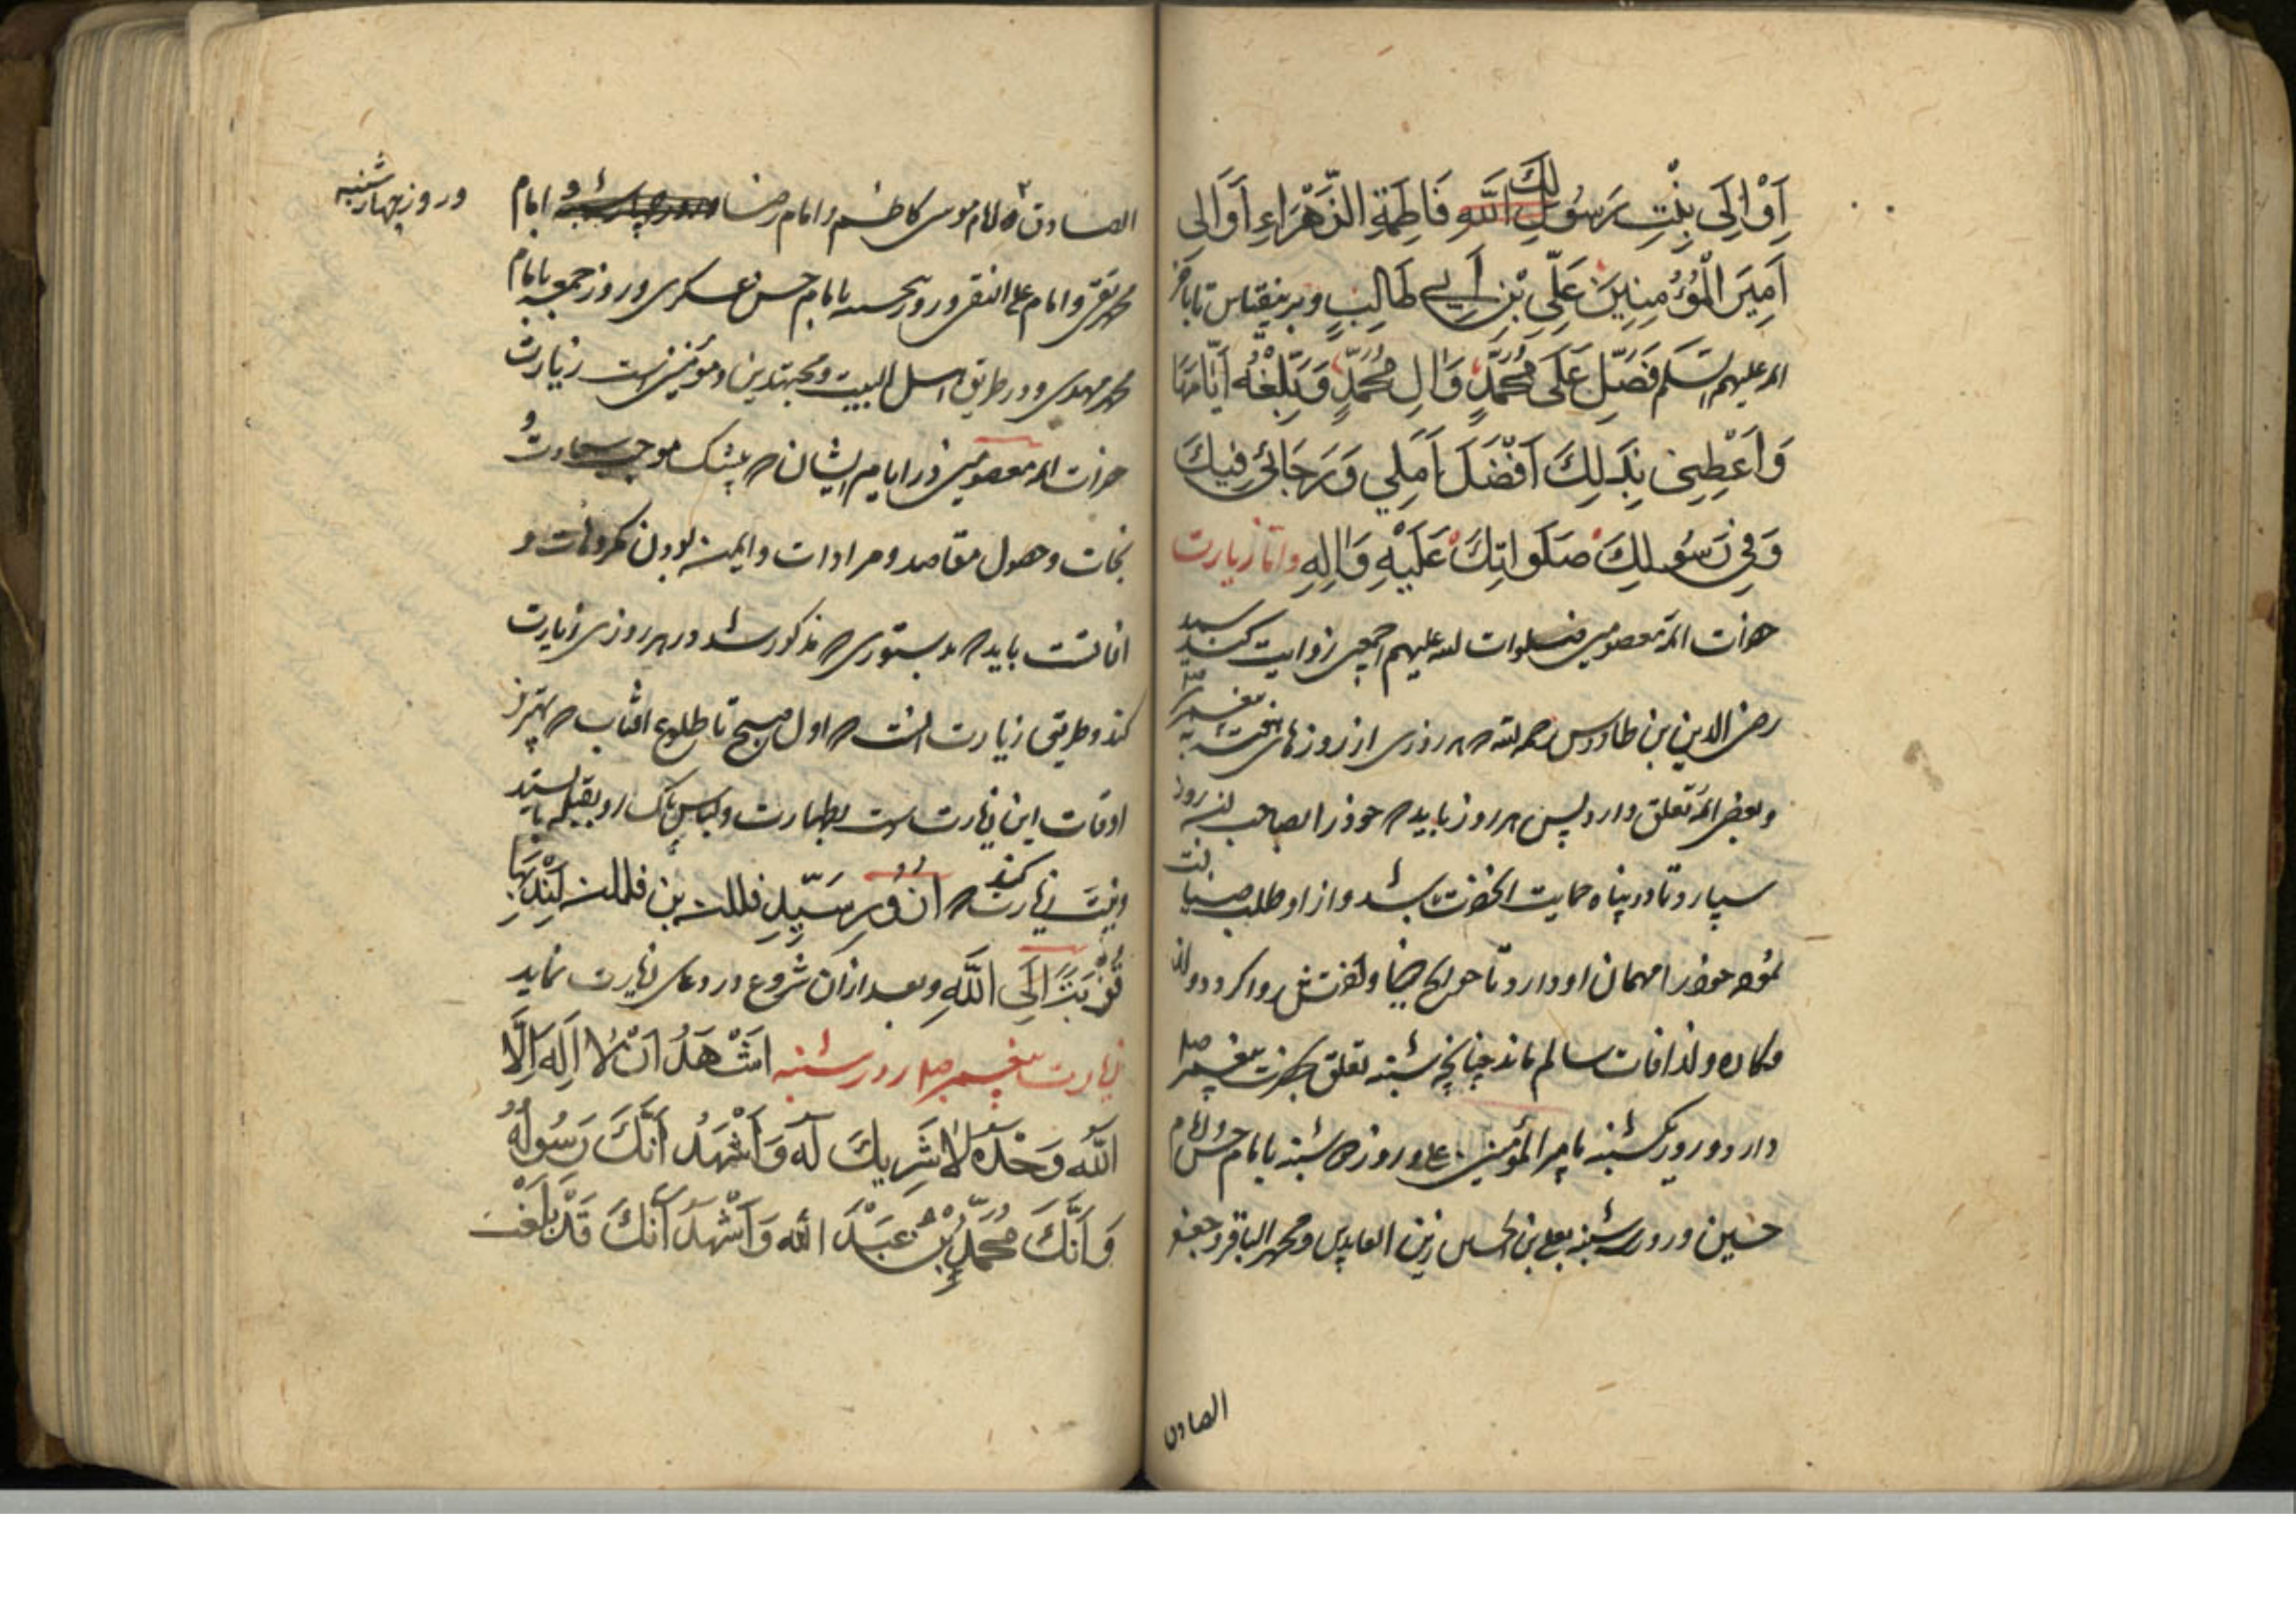 اَوْ اِلَى بِنْتِ رَسُولِكَ فَاطِمَةِ الزَّهْرَاءِ اَوْ اِلى
اَمِيرَ الْمُؤْمِنِينَ عَلِّىِ بْنِ اَبِي طَالِبٍ وبرینقیاس تا باخر
ائمه علیهم السلام فَصَلِّ عَلَى مُحَمَّدٍ وَالِ مُحَمَّدٍ وَبَلِّغْهُ
وَاَعْطِنِى بِذَلِكَ اَفْضَلَ اَمَلِي وَرَجَائِي فِيكَ
وَفِي رَسُولِكَ صَلَواتِكَ عَلَيْهِ وَالِهِ واما زیارت
حضرات ائمه معصومین صلوات الله علیهم اجمعین روایت کند سید
رضی الدین بن طاووس رحمه الله که هر روزی از روزهای هفته به پیغمبر
وبعض ائمه تعلق دارد پس هر روز باید که خود را بصاحب انروز
سپارد تا در پناه حمایت انحضرت باشد و از او طلب ضیافت
نموده خود را مهمان او دارد تا حوایج
مکاره و از افات سالم ماند چنانچه شنبه تعلق بحضرت پیغمبر صلم
دارد و روز یکشنبه بامیر المؤمنین ع و روز دوشنبه بامام حسن و امام
حسین و روز سه شنبه بعلی بن الحسین زین العابدین و محمد الباقر و جعفر
الصادق
الصادق و امام موسی کاظم و امام رضا و امام
و روز چهارشنبه
محمد تقی و امام علی النقی و روز پنجشنبه بامام حسن عسکری و روز جمعه بامام
محمد مهدی و در طریق اهل البیت و مجتهدین و مؤمنین است زیارت
حضرات ائمه معصومین در ایام ایشان که بیشک موجب سعادت و
نجات و حصول مقاصد و مرادات و ایمن بودن مکروهات و
افاتست باید که بدستوری که مذکور شد در هر روزی زیارت
کند و طریق زیارت انست که اول صبح تا طلوع افتاب که بهترین
اوقات این زیارت است بطهارت و لباس پاک رو بقبله بایستد
ونیت زیارت کند که اَزُورُ سَيِّدِ فلان بن فلان
قُرْبَتً اِلَى اللَّهِ وبعد از ان شروع در دعای زیارت نماید
زیارت پیغمبر صلم روز شنبه اَشْهَدُ اَنْ لَا اِلَهَ اِلَّا
اللَّهَ وَحْدَهُ لَا شَرِيكَ لَهُ وَاَشْهَدُ اَنَّكَ رَسُولُهُ
وَاَنَّكَ مُحَمَّدُ بْنُ عَبْدَ الله وَاَشْهَدُ اَنَّكَ قَدْ بَلَغْتَ